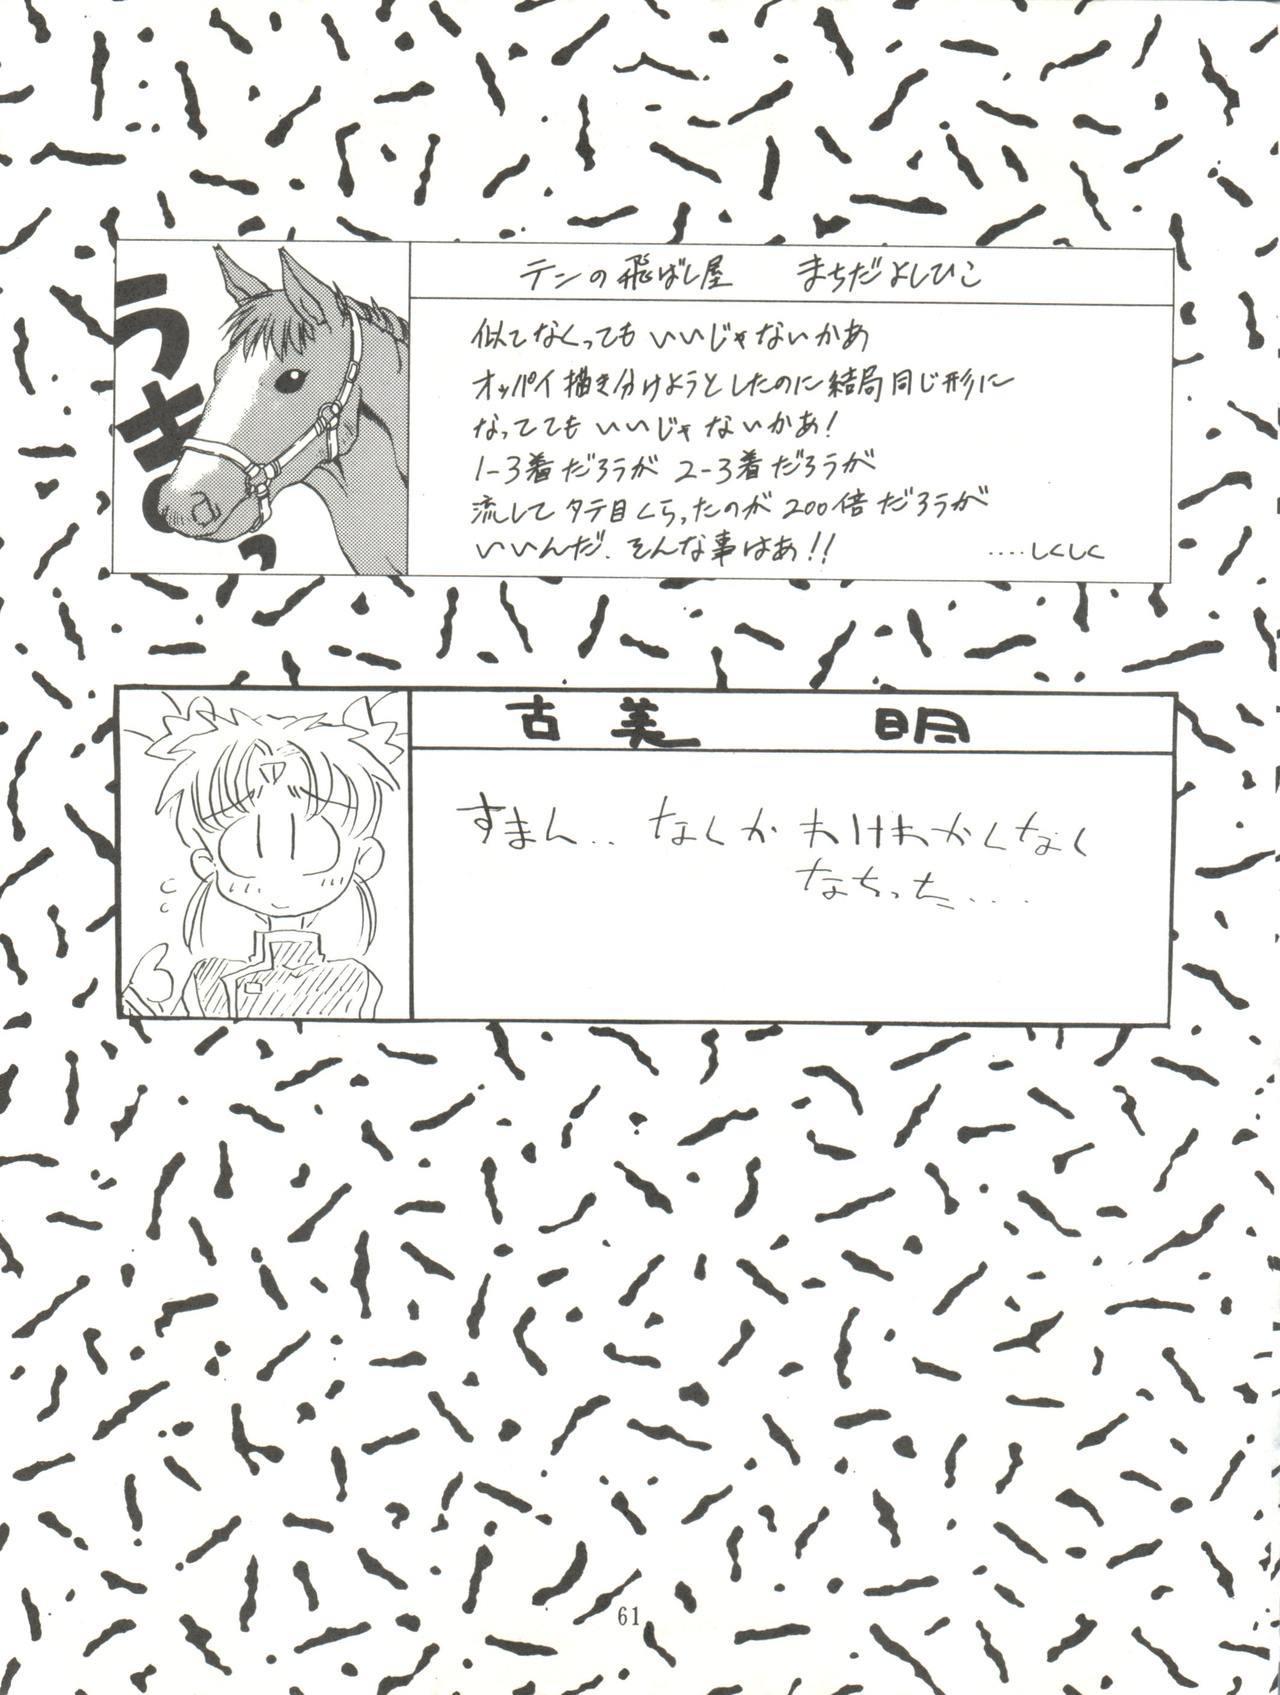 テンの飛ばし屋　まちだよしひこ
うきっ
似てなくってもいいじゃないかあ
オッパイ描き分けようとしたのに結局同じ形に
なっててもいいじゃないかあ!
1-3着だろうが 2-3着だろうが
流してタテ目くらったのが200倍だろうが
いいんだ、そんな事はあ!!　‥‥しくしく
古美　明
すまん‥なくか わけわかくなく
なちった‥‥
61